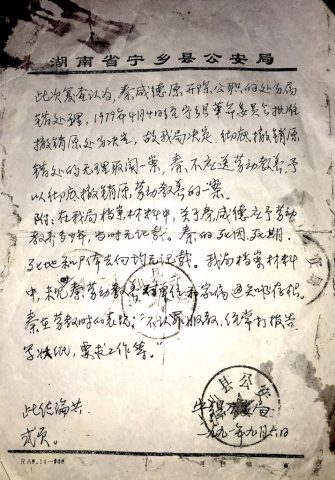 湖南省宁乡县公安局
此次复查认为，秦咸德原开除公职的处分属
错处理，1979年4月4日经宁乡县革命委员会批准
撤销原处分决定，故我局决定彻底撤销原
错处的无理取闹一案，秦不应送劳动教养，予
以彻底撤销原劳动教养的一案。
附：在我局档案材料中，关于秦咸德应予劳动
教养多少年，当时无记载。秦的死因、死期、
死地和尸体去向均无记载。我局档案材料
中，未见秦劳动教养单位和家病通知的存根。
秦在劳教时的表现：“不认罪服教，经常打报告
写状纸，要求工作等。
此结论共
贰页。
县公安
一九九一年九月六日